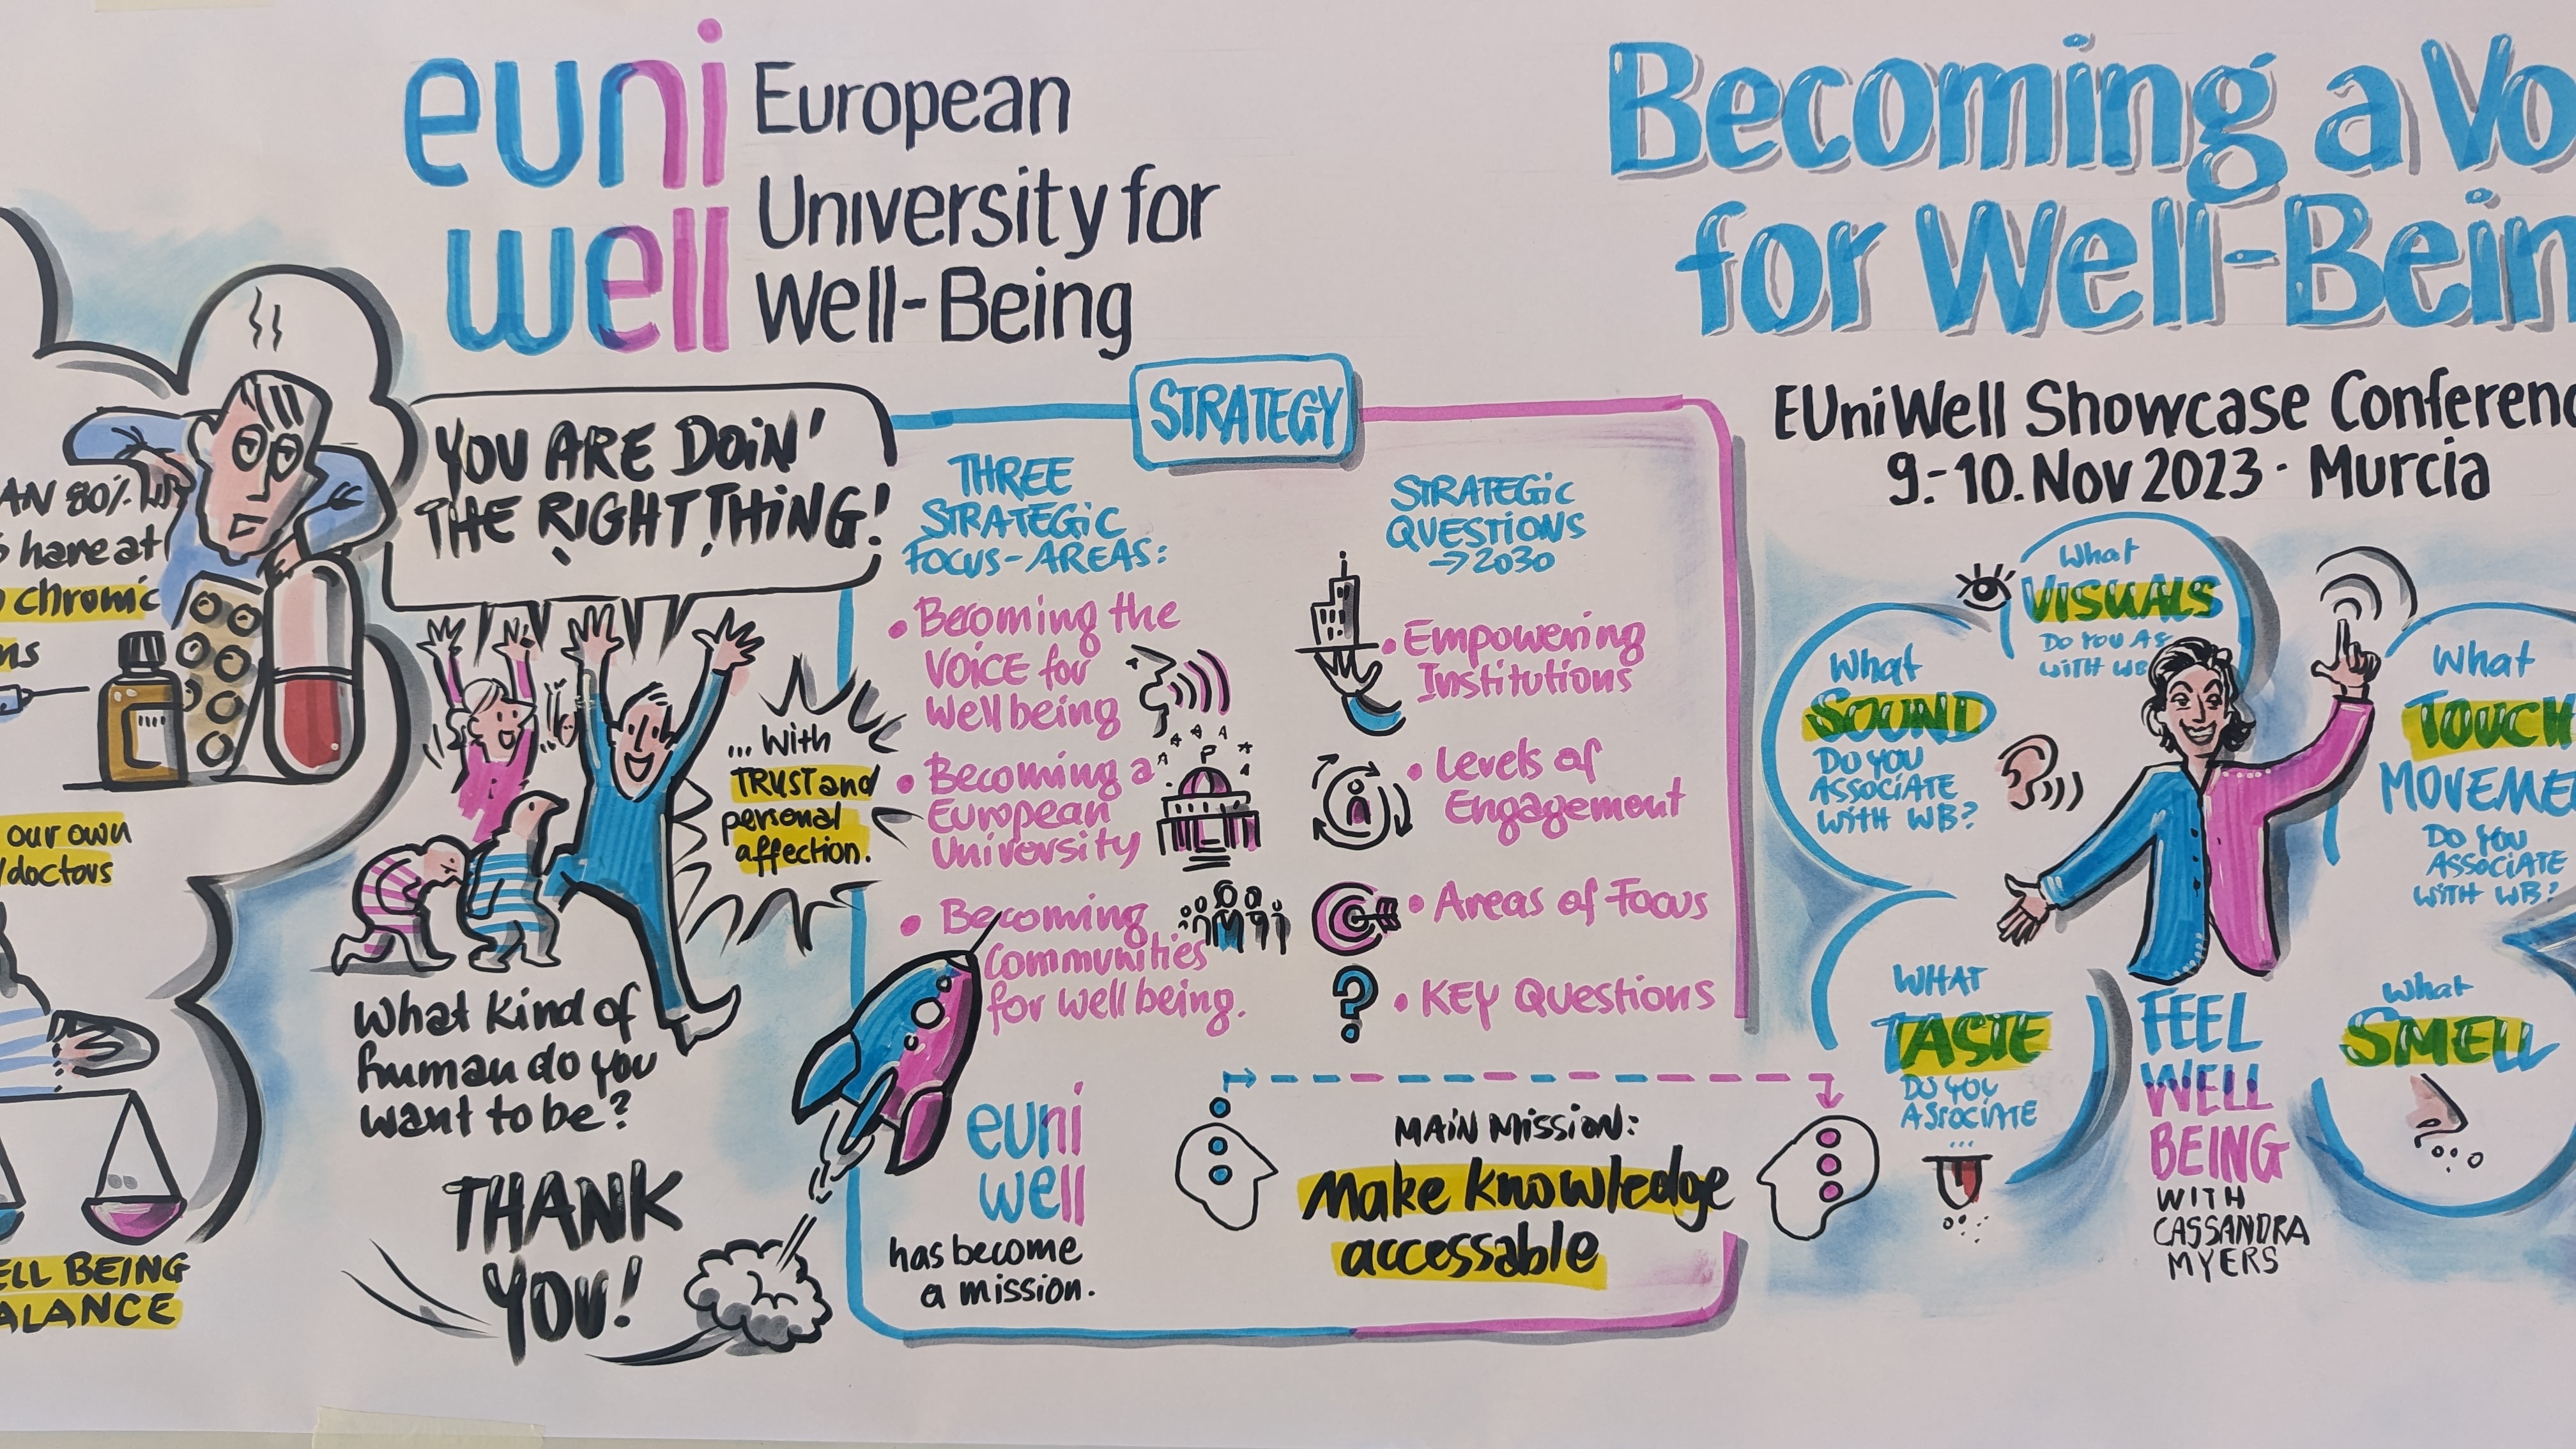 euni
well
European
University for
Well-Being
Becoming a Vo
for Well-Bein
EUniWell Showcase Conferenc
9.-10. Nov 2023 · Murcia
AN 80%
s have at
chronic
ns
our own
/doctors
ELL BEING
ALANCE
YOU ARE DOiN'
THE RIGHT THiNG!
... with
TRUST and
personal
affection.
What kind of
human do you
want to be?
THANK
YOU!
STRATEGY
THREE
STRATEGiC
FOCUS-AREAS:
• Becoming the
VOiCE for
wellbeing
• Becoming a
European
University
• Becoming
Communities
for wellbeing.
STRATEGiC
QUESTiONS
→2030
• Empowering
Institutions
• Levels of
Engagement
• Areas of Focus
• KEY Questions
euni
well
has become
a mission.
MAiN Mission:
Make knowledge
accessable
What
VISUALS
DO YOU AS
WiTH WB
What
SOUND
DO YOU
ASSOCiATE
WiTH WB?
What
TOUCH
MOVEME
DO YOU
ASSOCIATE
WiTH WB?
WHAT
TASTE
DO YOU
ASSOCIATE
...
What
SMELL
FEEL
WELL
BEING
WITH
CASSANDRA
MYERS